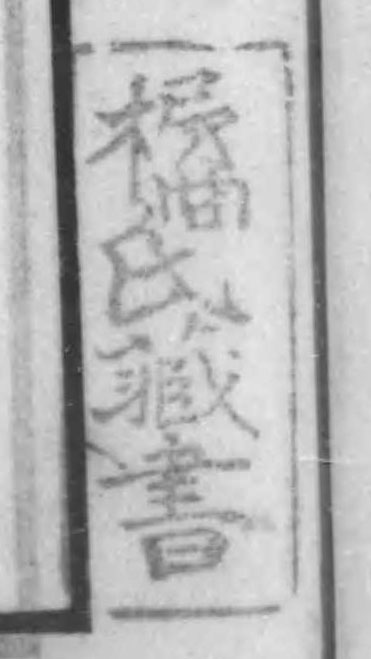 橘氏藏書